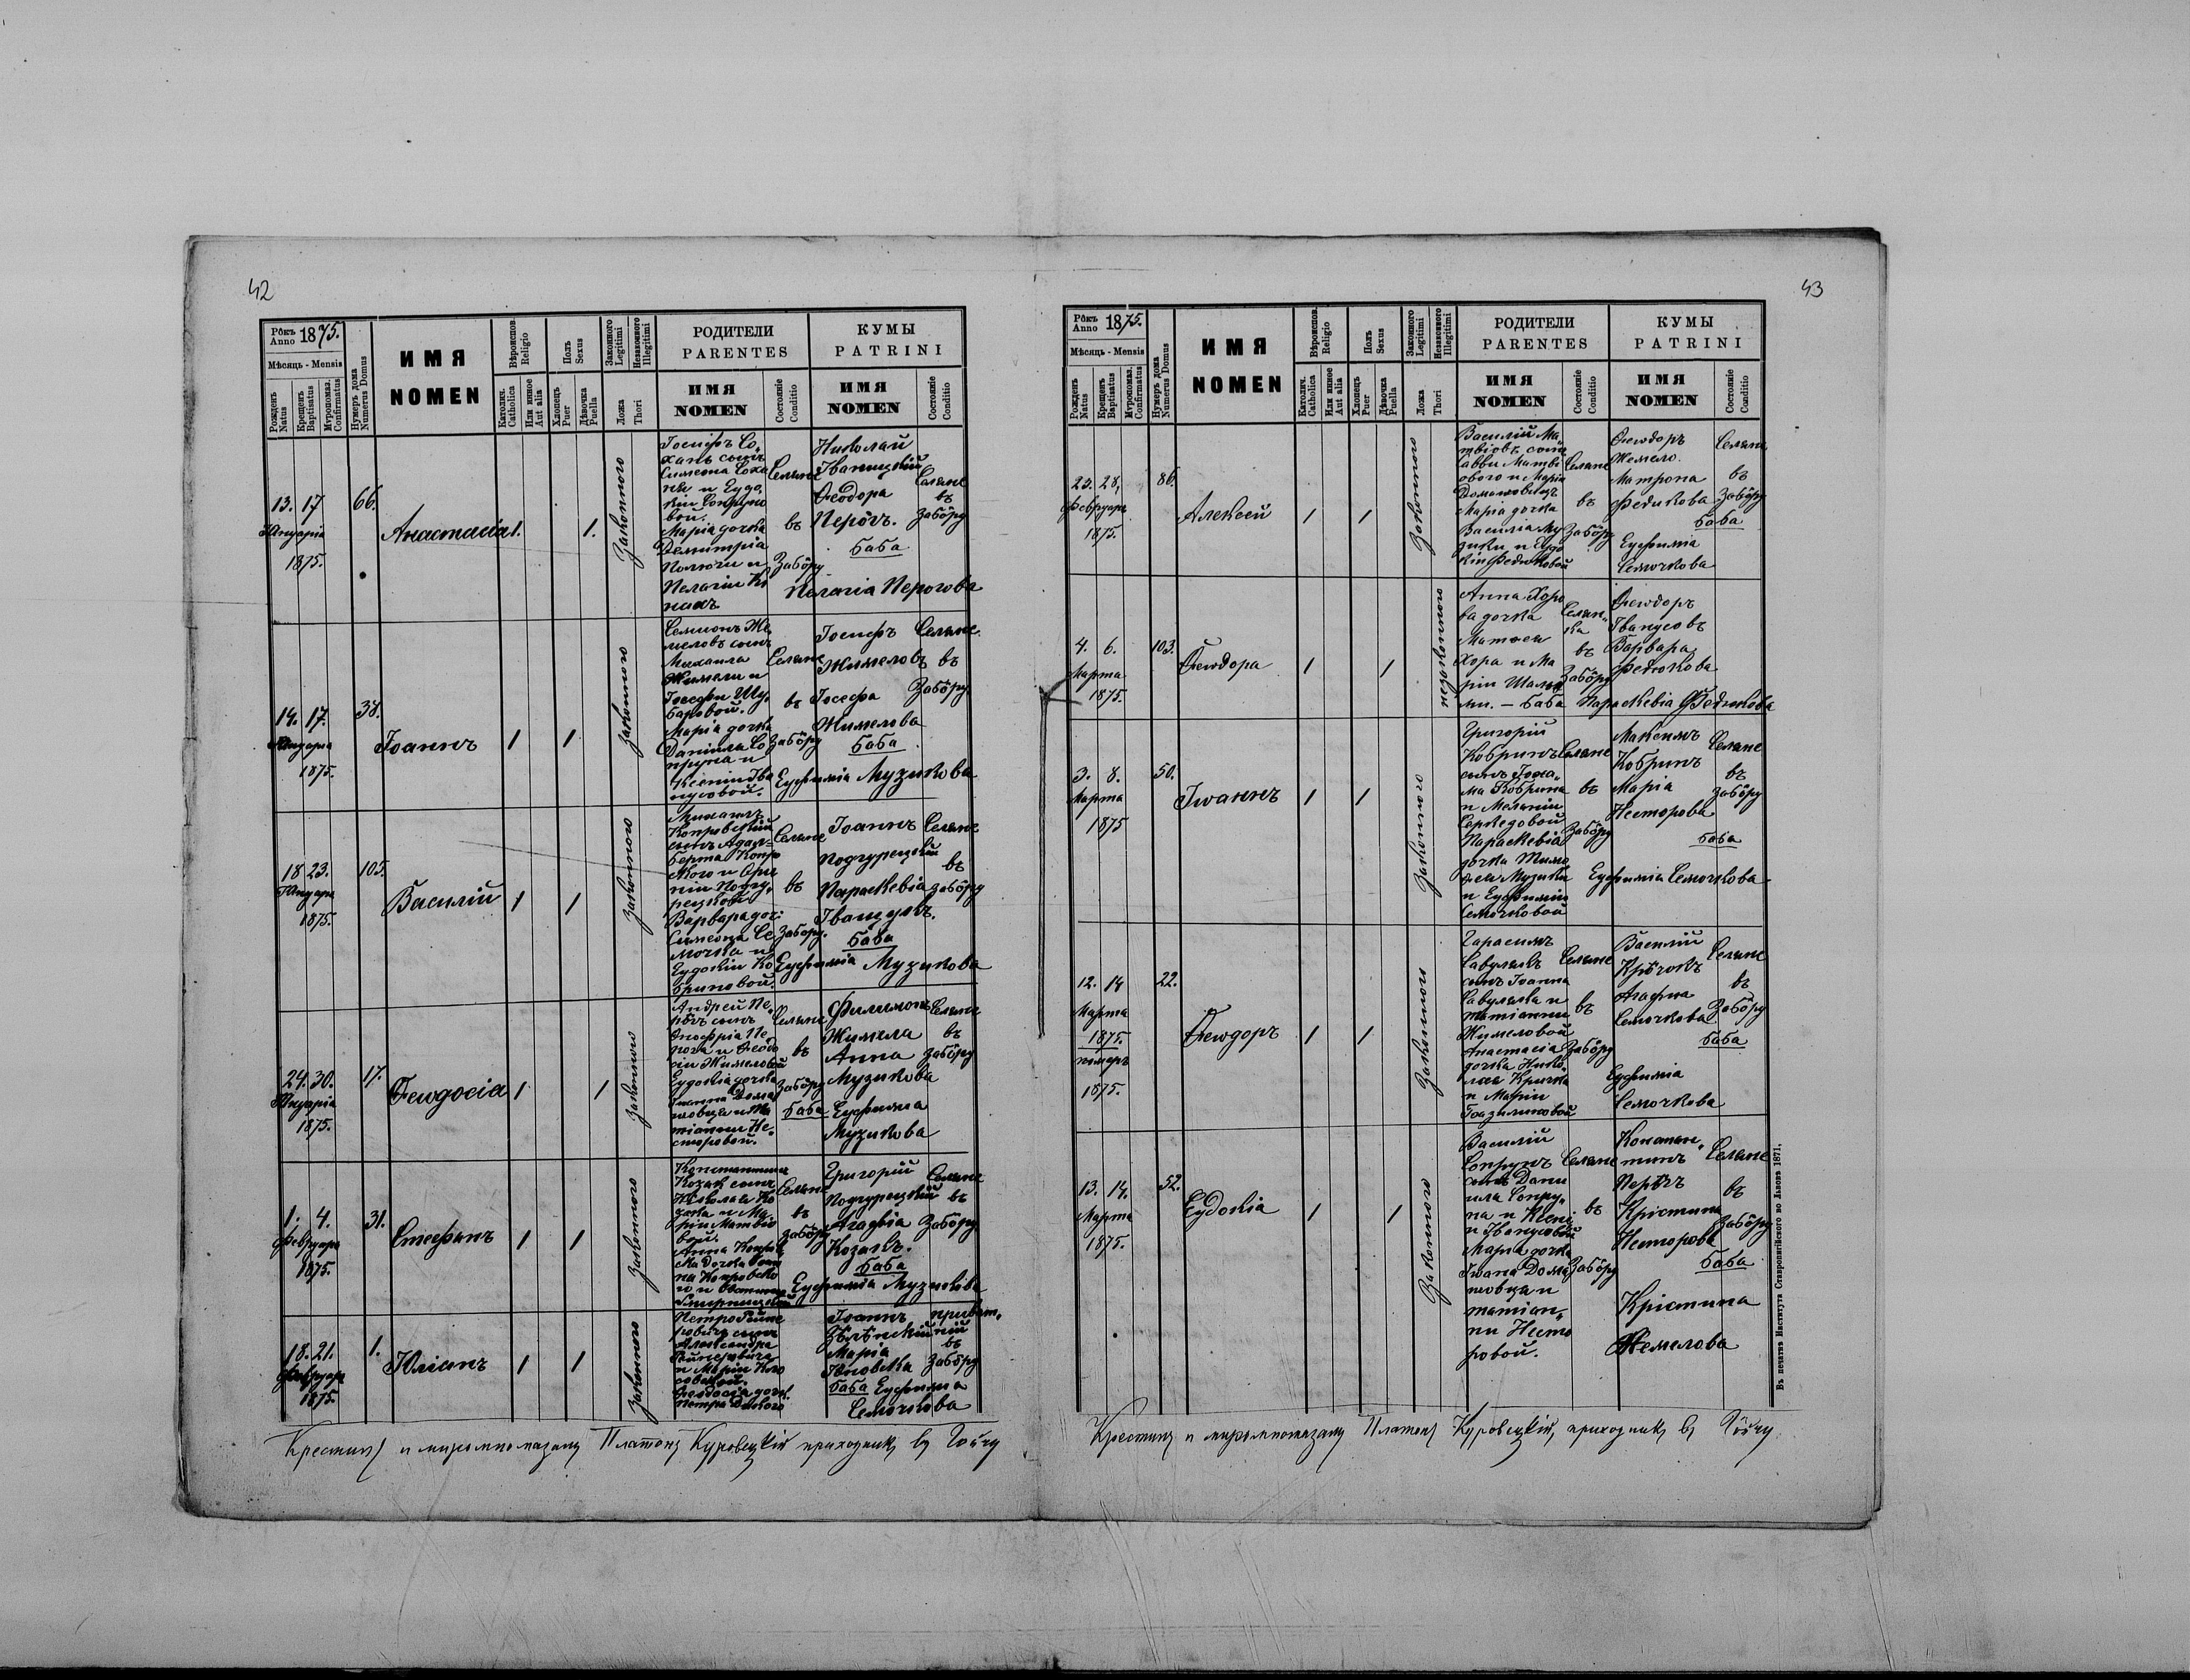 42
Рôкъ 1875.
Anno
Мѣсяць - Mensis
Рожденъ
Natus
Крещенъ
Baptisatus
Мѵропомаз.
Confirmatus
Нумеръ дома
Numerus Domus
ИМЯ
NOMEN
Вѣроиспов.
Religio
Католич.
Catholica
Или инное
Aut alia
Полъ
Sexus
Хлопецъ
Puer
Дѣвочка
Puella
Законного
Legitimi
Незаконного
Illegitimi
Ложа
Thori
РОДИТЕЛИ
PARENTES
ИМЯ
NOMEN
Состояніе
Conditio
КУМЫ
PATRINI
ИМЯ
NOMEN
Состояніе
Conditio
13. 17
Януарія
1875.
66.
Анастасіа
1.
1.
Законного
Іосифъ Со„
ханъ сынъ
Симеона Соха
на и Еудо
кіи Сопруно
вой.
Маріа дочка
Демитріа
и
Пелагіи
Селяне
въ
Забôру
Николай
Іваницкій
Ѳеодора
Перôгъ.
баба
Пелагіа Перогова
Селяне
въ
Забôру
14. 17.
Януаріа
1875.
38.
Іоаннъ
1
1
Законного
Семионъ Жи
меловъ сынъ
Михаила
Жимели и
Іосефы Шу,
баровой.
Маріа дочка
Даніила Со
пруна и
Ксеніи Іва
нусовой.
Селяне
въ
Забôру
Іосифъ
Жимеловъ
Іосефа
Жимелова
баба
Еуфиміа Музикова
Селяне.
въ
Забôру
18 23.
Януара
1875.
105.
Василій
1
1
Законного
Михаилъ
Копровскій
сынъ Адаль
берта Копро
вского и Ори
ніи Подгу,
рецкова
Варвара доч:
Симеона Се
мочка и
Еудокіи Ко
бриновой.
Селяне
въ
Забору.
Іоаннъ
Подгурецкій
Параскевіа
Іванцулъ.
баба
Еуфиміа Музикова
Селяне
въ
Забôру
24. 30.
Януаріа
1875.
17.
Ѳеодосіа
1
1
Законного
Андрей Пе,
рôгъ сынъ
Онофріа Пе
рога и Ѳеодо
сіи Жимеловой
Еудокіа дочка
Іоанна Дома
шовца и Та
тіанни Не„
сторовой.
Селяне
въ
Забôру
Филимонъ
Жимела
Анна
Музикова
баба Еуфиміа
Музикова
Селяне
въ
Забôру
1. 4.
Февруара
1875.
31.
Стефанъ
1
1
Законного
Константинъ
Козак сынъ
Николая Ко
зака и Ма,
ріи Матвіо
вой.
Анна Копров
ска дочка Іоан
на Копровско
го и
Селяне
въ
Забôру
Григорій
Подгурецкій
Агафіа
Козакъ.
баба
Еуфиміа Музикова
Селяне
въ
Забôру
18. 21.
Февруара
1875.
1.
Юліанъ
1
1
Законного
Петро
сынъ
Александра
и Маріи
Ѳеодосіа доч.
Петра
Іоаннъ
Зѣлѣнскій
Маріа
баба Еуфиміа
Семочкова
приват„
ній
въ
Забôру
Крестилъ и миромпомазалъ Платонъ Куровецкій приходникъ въ
43
Рôкъ 1875.
Anno
Мѣсяць - Mensis
Рожденъ
Natus
Крещенъ
Baptisatus
Мѵропомаз.
Confirmatus
Нумеръ дома
Numerus Domus
ИМЯ
NOMEN
Вѣроиспов.
Religio
Католич.
Catholica
Или инное
Aut alia
Полъ
Sexus
Хлопецъ
Puer
Дѣвочка
Puella
Законного
Legitimi
Незаконного
Illegitimi
Ложа
Thori
РОДИТЕЛИ
PARENTES
ИМЯ
NOMEN
Состояніе
Conditio
КУМЫ
PATRINI
ИМЯ
NOMEN
Состояніе
Conditio
25. 28,
Февруара
1875.
86.
Алексей
1
1
Законного
Василій Ма„
твіовъ сынъ
Саввы Матві
ового и Маріи
Домашовецъ
Маріа дочка
Василіа Му
зики и Еудо
кіи Федюковой
Селяне
въ
Забôру
Ѳеодоръ
Жемело.
Матрона
Федюкова
баба
Еуфиміа
Семочкова
Селяне
въ
Забôру
4. 6.
Марта
1875.
103.
Ѳеодора
1
1
незаконного
Анна Хоро
ва дочка
Матфея
Хора и Ма
ріи
баба Параскевіа Федюкова
Селян„
ка
въ
Забôру
Ѳеодоръ
Іванусовъ
Варвара
Федюкова
3. 8.
Марта
1875
50.
Іоаннъ
1
1
Законного
Григорій
Кобринъ
сынъ
Кобрина
и Меланіи
Параскевіа
дочка Тимо
фея Музики
и Еуфиміи
Семочковой
Селяне
въ
Забôру
Максимъ
Кобринъ
Маріа
Несторова
баба
Еуфиміа Семочкова
Селяне
въ
Забôру
12. 14
Марта
1875.
1875.
22.
Ѳеодоръ
1
1
Законного
Гарасимъ
Савулякъ
сынъ Іоанна
Савуляка и
Татіанни
Жимеловой
Анастасіа
дочка Нико
лая Кричка
и Маріи
Селяне
въ
Забôру
Василій
Крѣчокъ
Агафиа
Семочкова
баба
Еуфиміа
Семочкова
Селяне
въ
Забôру
13. 14.
Марта
1875.
52.
Еудокіа
1
1
Законного
Василій
Сопрунъ
сынъ Дани
ила Сопру„
на и Ксені
и Іванусовой
Маріа дочка
Івана Дома
шовца и
Татіан„
ни Несто
ровой.
Селяне
въ
Забôру
Констан„
тинъ
Перôгъ
Крістина
Несторова
баба
Крістина
Жемелова
Селяне
въ
Забôру
Крестилъ и миромпомазалъ Платонъ Куровецкій, приходникъ въ
Въ печатнѣ Института Ставропигійского во Львовѣ 1871.